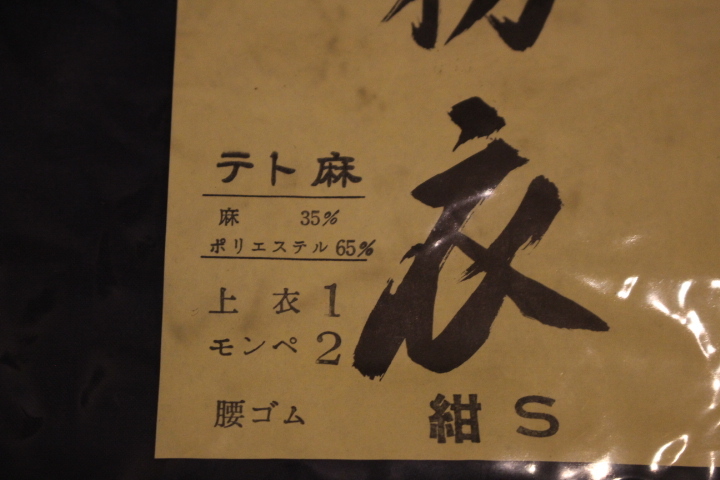 衣
テト麻
麻 35%
ポリエステル 65%
上衣 1
モンペ 2
腰ゴム
紺 S